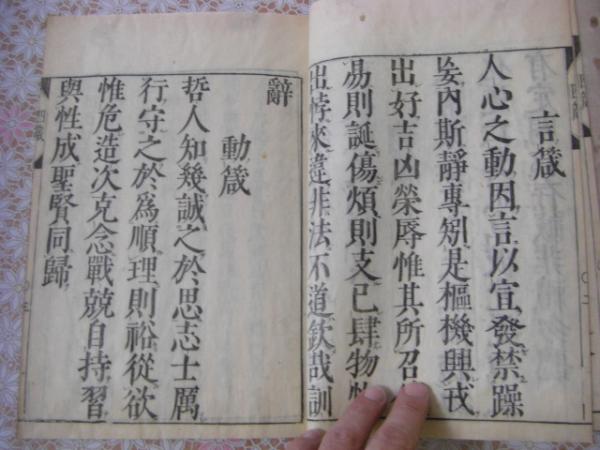 四箴
言箴
人心之動因言以宣發禁躁
妄内斯靜專矧是樞機興戎
出好吉凶榮辱惟其所召
易則誕傷煩則支己肆物
出悖來違非法不道欽哉訓
辭
動箴
哲人知幾誠之於思志士厲
行守之於爲順理則裕從欲
惟危造次克念戰兢自持習
與性成聖賢同歸
四箴